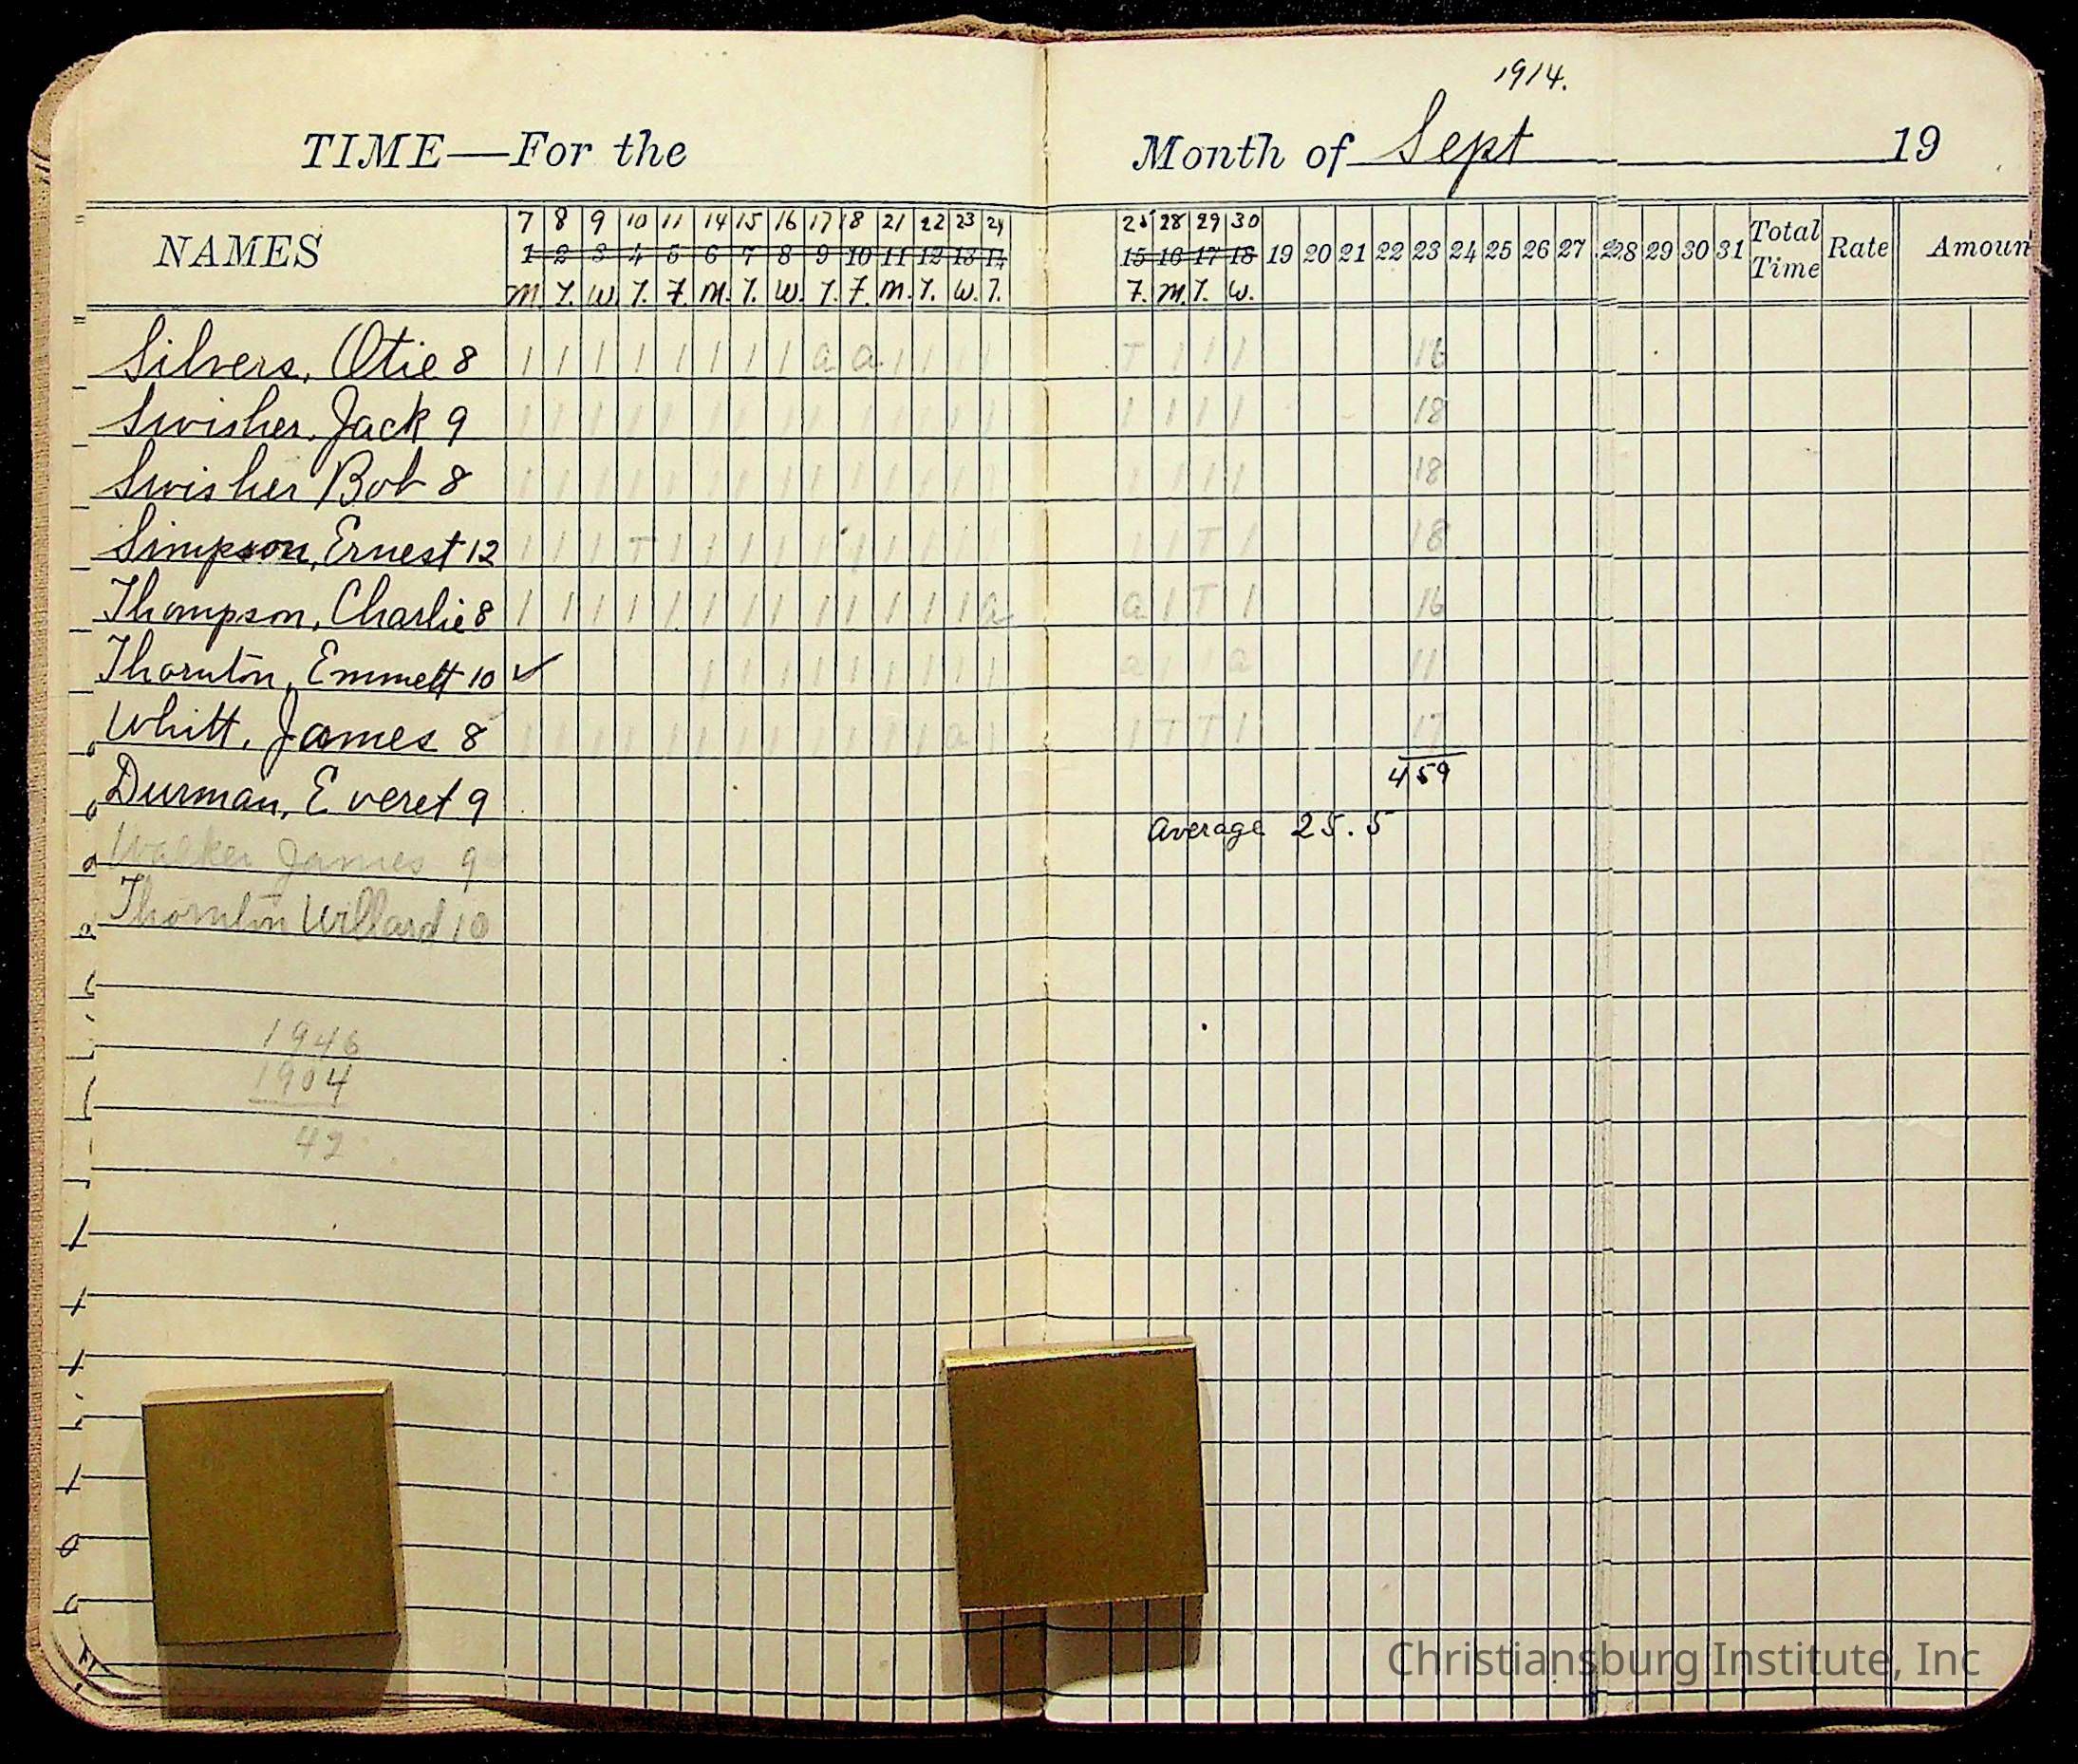 1914.
TIME—For the Month of Sept 19
7 8 9 10 11 14 15 16 17 18 21 22 23 24 25 28 29 30
NAMES 1 2 3 4 5 6 7 8 9 10 11 12 13 14 15 16 17 18 19 20 21 22 23 24 25 26 27 28 29 30 31 Total Time Rate Amoun
M. T. W. T. F. M. T. W. T. F. M. T. W. T. F. M. T. W.
Silvers, Otie 8 1 1 1 1 1 1 1 1 a a 1 1 1 1 T 1 1 1 16
Swisher, Jack 9 1 1 1 1 1 1 1 1 1 1 1 1 1 1 1 1 1 1 18
Swisher Bob 8 1 1 1 1 1 1 1 1 1 1 1 1 1 1 1 1 1 1 18
Simpson, Ernest 12 1 1 1 T 1 1 1 1 1 1 1 1 1 1 1 1 T 1 18
Thompson, Charlie 8 1 1 1 1 1 1 1 1 1 1 1 1 1 a a 1 T 1 16
Thornton, Emmett 10 ✓ 1 1 1 1 1 1 1 1 1 a 1 1 a 11
Whitt, James 8 1 1 1 1 1 1 1 1 1 1 1 1 a 1 1 T T 1 17
459
Durman, Everet 9
Average 25.5
Walker James 9
Thornton Willard 10
1946
1904
42
Christiansburg Institute, Inc